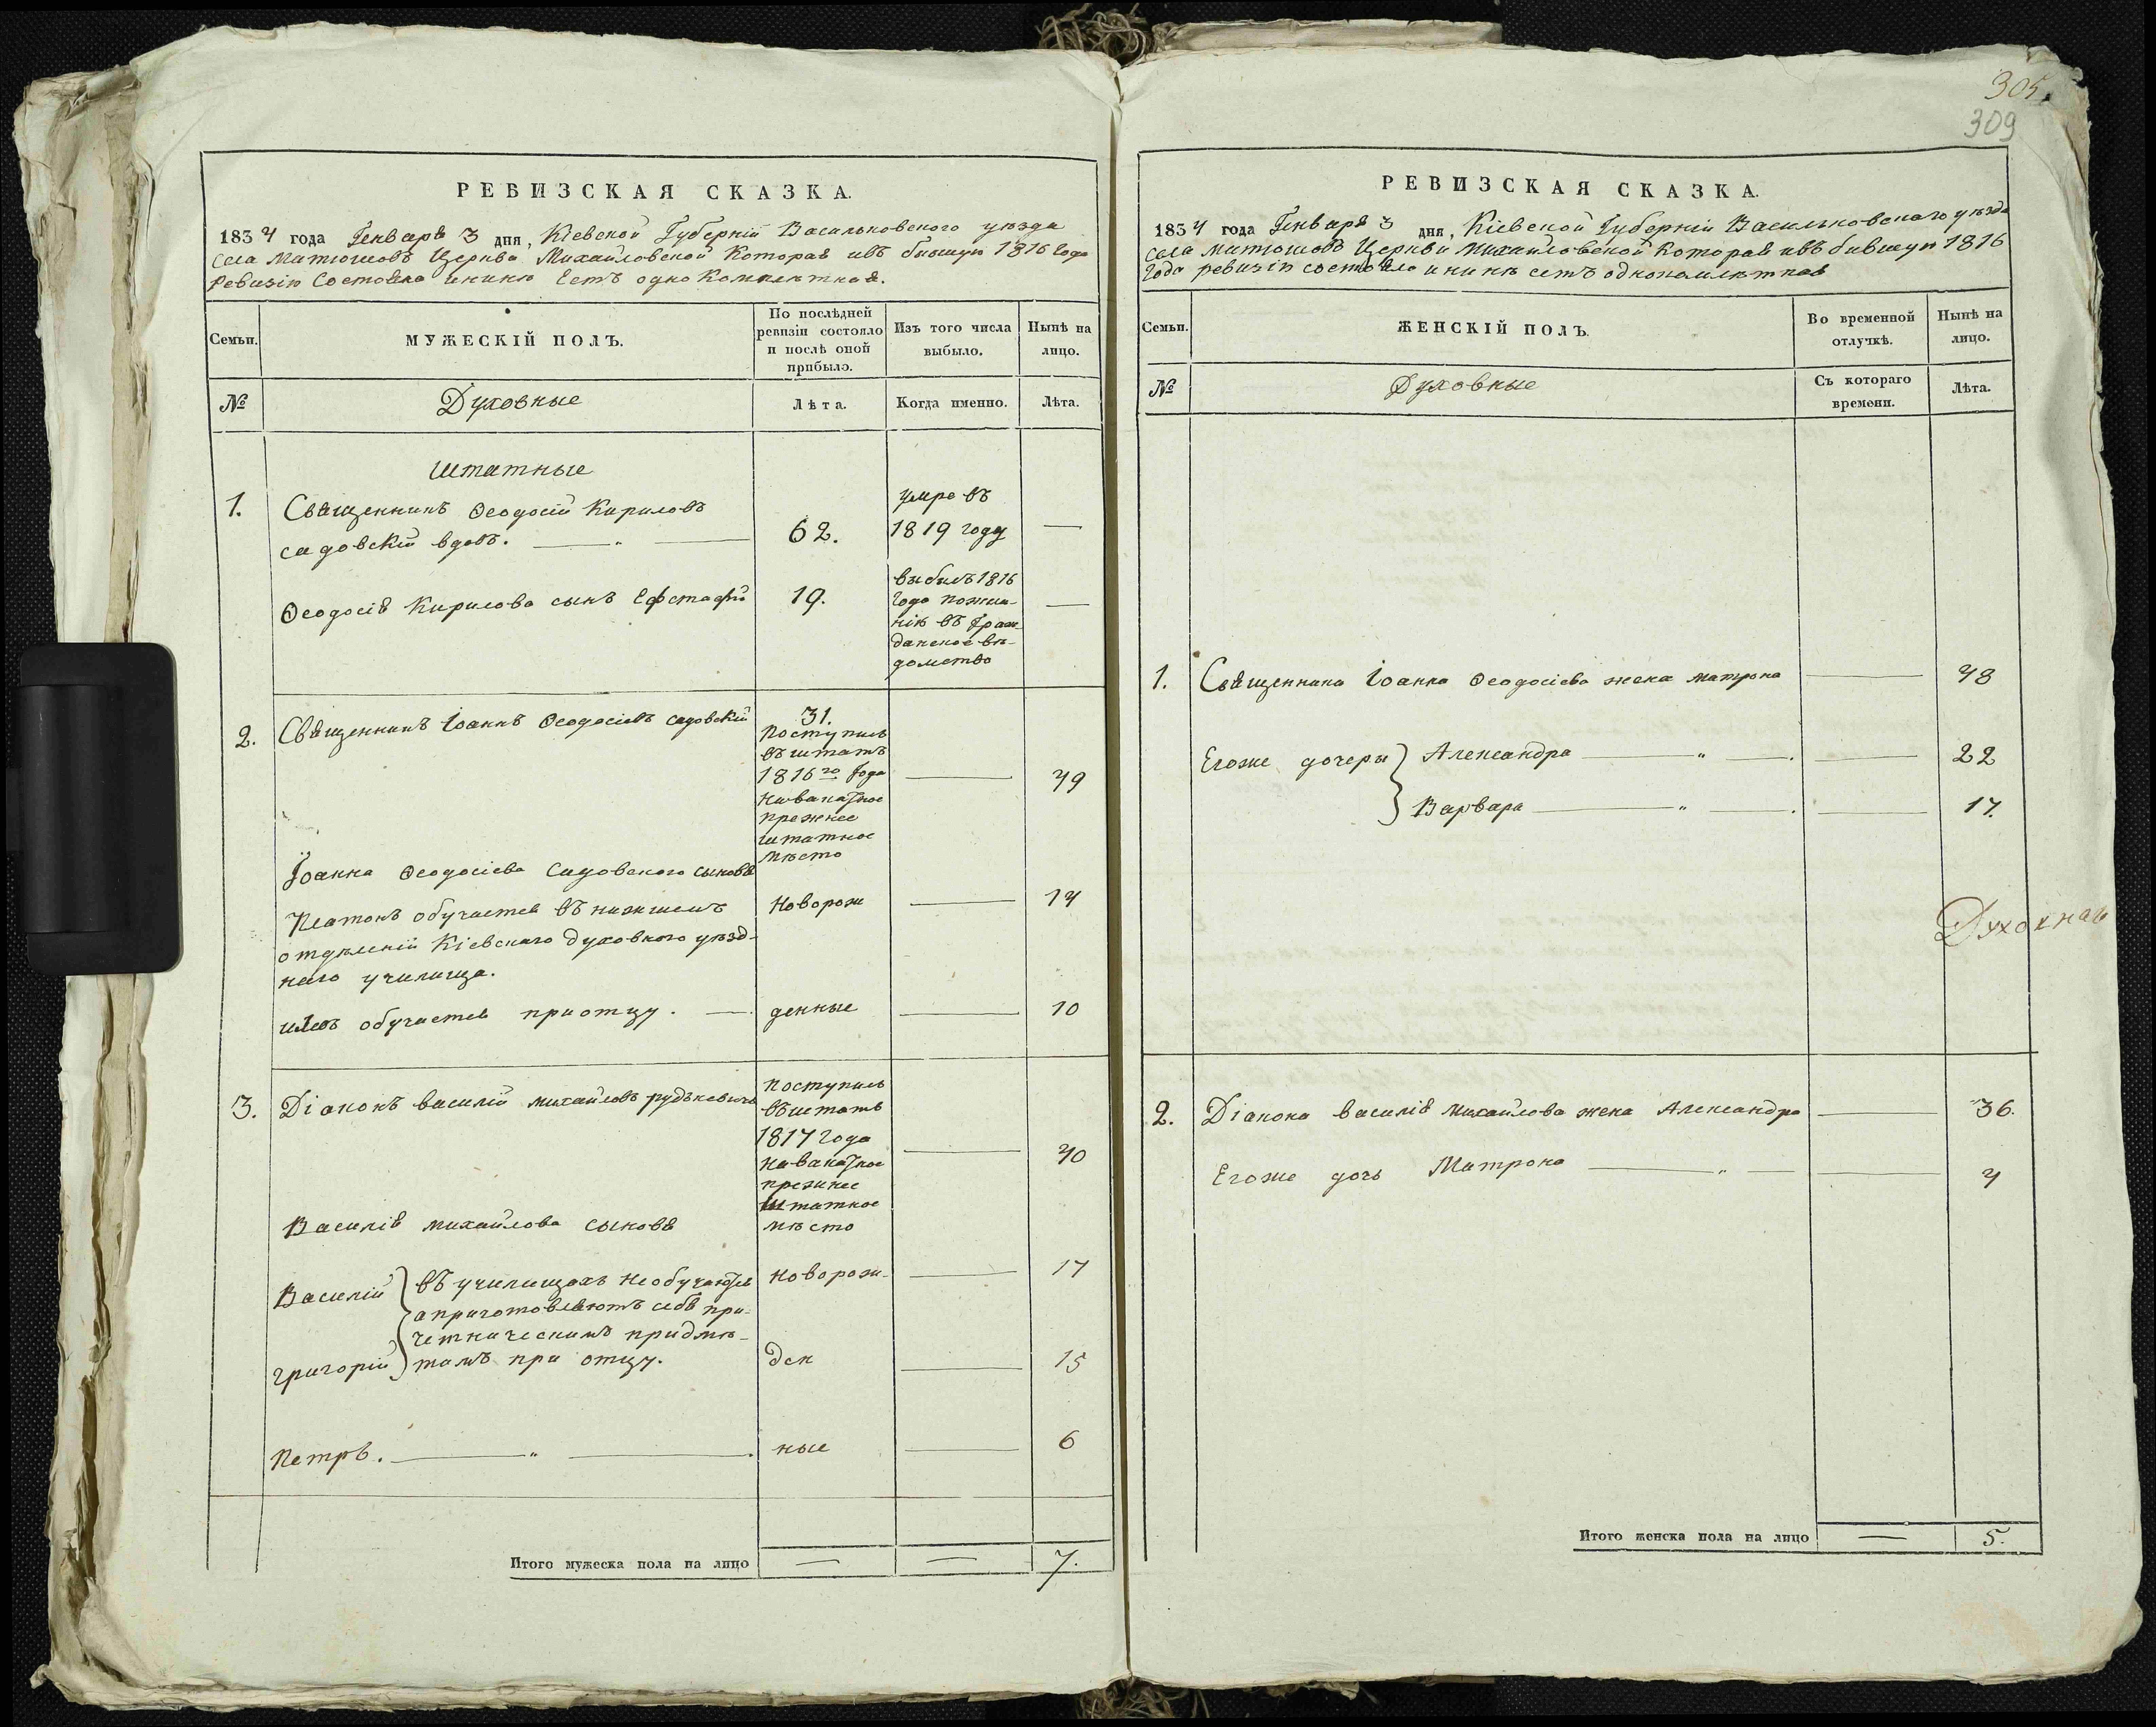 РЕВИЗСКАЯ СКАЗКА.
1834 года Генваря 3 дня, Кіевской Губерніи Васильковского уезда
села Матюшовъ Церква Михайловской Которая ивъ бывшую 1816 Года
Ревизію Состояла инынѣ Естъ однокомплектная.
Семьи. МУЖЕСКІЙ ПОЛЪ. По послѣдней ревизіи состояло и послѣ оной прибыло. Изъ того числа выбыло. Нынѣ на лицо.
№ Духовные Лѣта. Когда именно. Лѣта.
Штатные
1. Священникъ Ѳеодосій Кириловъ
садовскій вдовъ. 62. умре въ 1819 году —
Ѳеодосія Кирилова сынъ Ефстафій 19. выбылъ 1816
Года
въ Граж-
данское вѣ-
домство
2. Священникъ Іоаннъ Ѳеодосіевъ садовскій 31. 49
Поступилъ
въ штатъ
1816го Года
на вакатное
прежнее
штатное
мѣсто
Іоанна Ѳеодосіева Садовского сыновя
Платонъ обучается въ низшемъ Новорож 14
отдѣленій Кіевскаго духовного уѣзд-
наго училища.
обучается приотцу. денные 10
3. Діаконъ василій михайловъ рудькевичъ Поступилъ 40
въ штатъ
1817 Года
на вакатное
прежнее
штатное
мѣсто
Василія михайлова сыновя
Василій въ училищахъ необучаются Новорож- 17
а приготовляютъ себя при-
четническимъ придмѣ-
Григорій тамъ при отцу. ден 15
Петръ. ные 6
Итого мужеска пола на лицо — — 7.
305.
309
РЕВИЗСКАЯ СКАЗКА.
1834 года Генваря 3 дня, Кіевской Губерніи Васильковскаго уѣзда
села матюшовъ Церкви Михайловской Которая ивъ бывшую 1816
Года ревизію состояла инынѣ естъ однокомплѣктная
Семьи. ЖЕНСКІЙ ПОЛЪ. Во временной отлучкѣ. Нынѣ на лицо.
№ Духовные Съ котораго времени. Лѣта.
1. Священника Іоанна Ѳеодосіева жена матрона — 48
Егоже дочеры Александра — 22
Варвара — 17.
Духовная
2. Діакона василія Михайлова жена Александра — 36.
Егоже дочь Матрона — 4
Итого женска пола на лицо — 5.